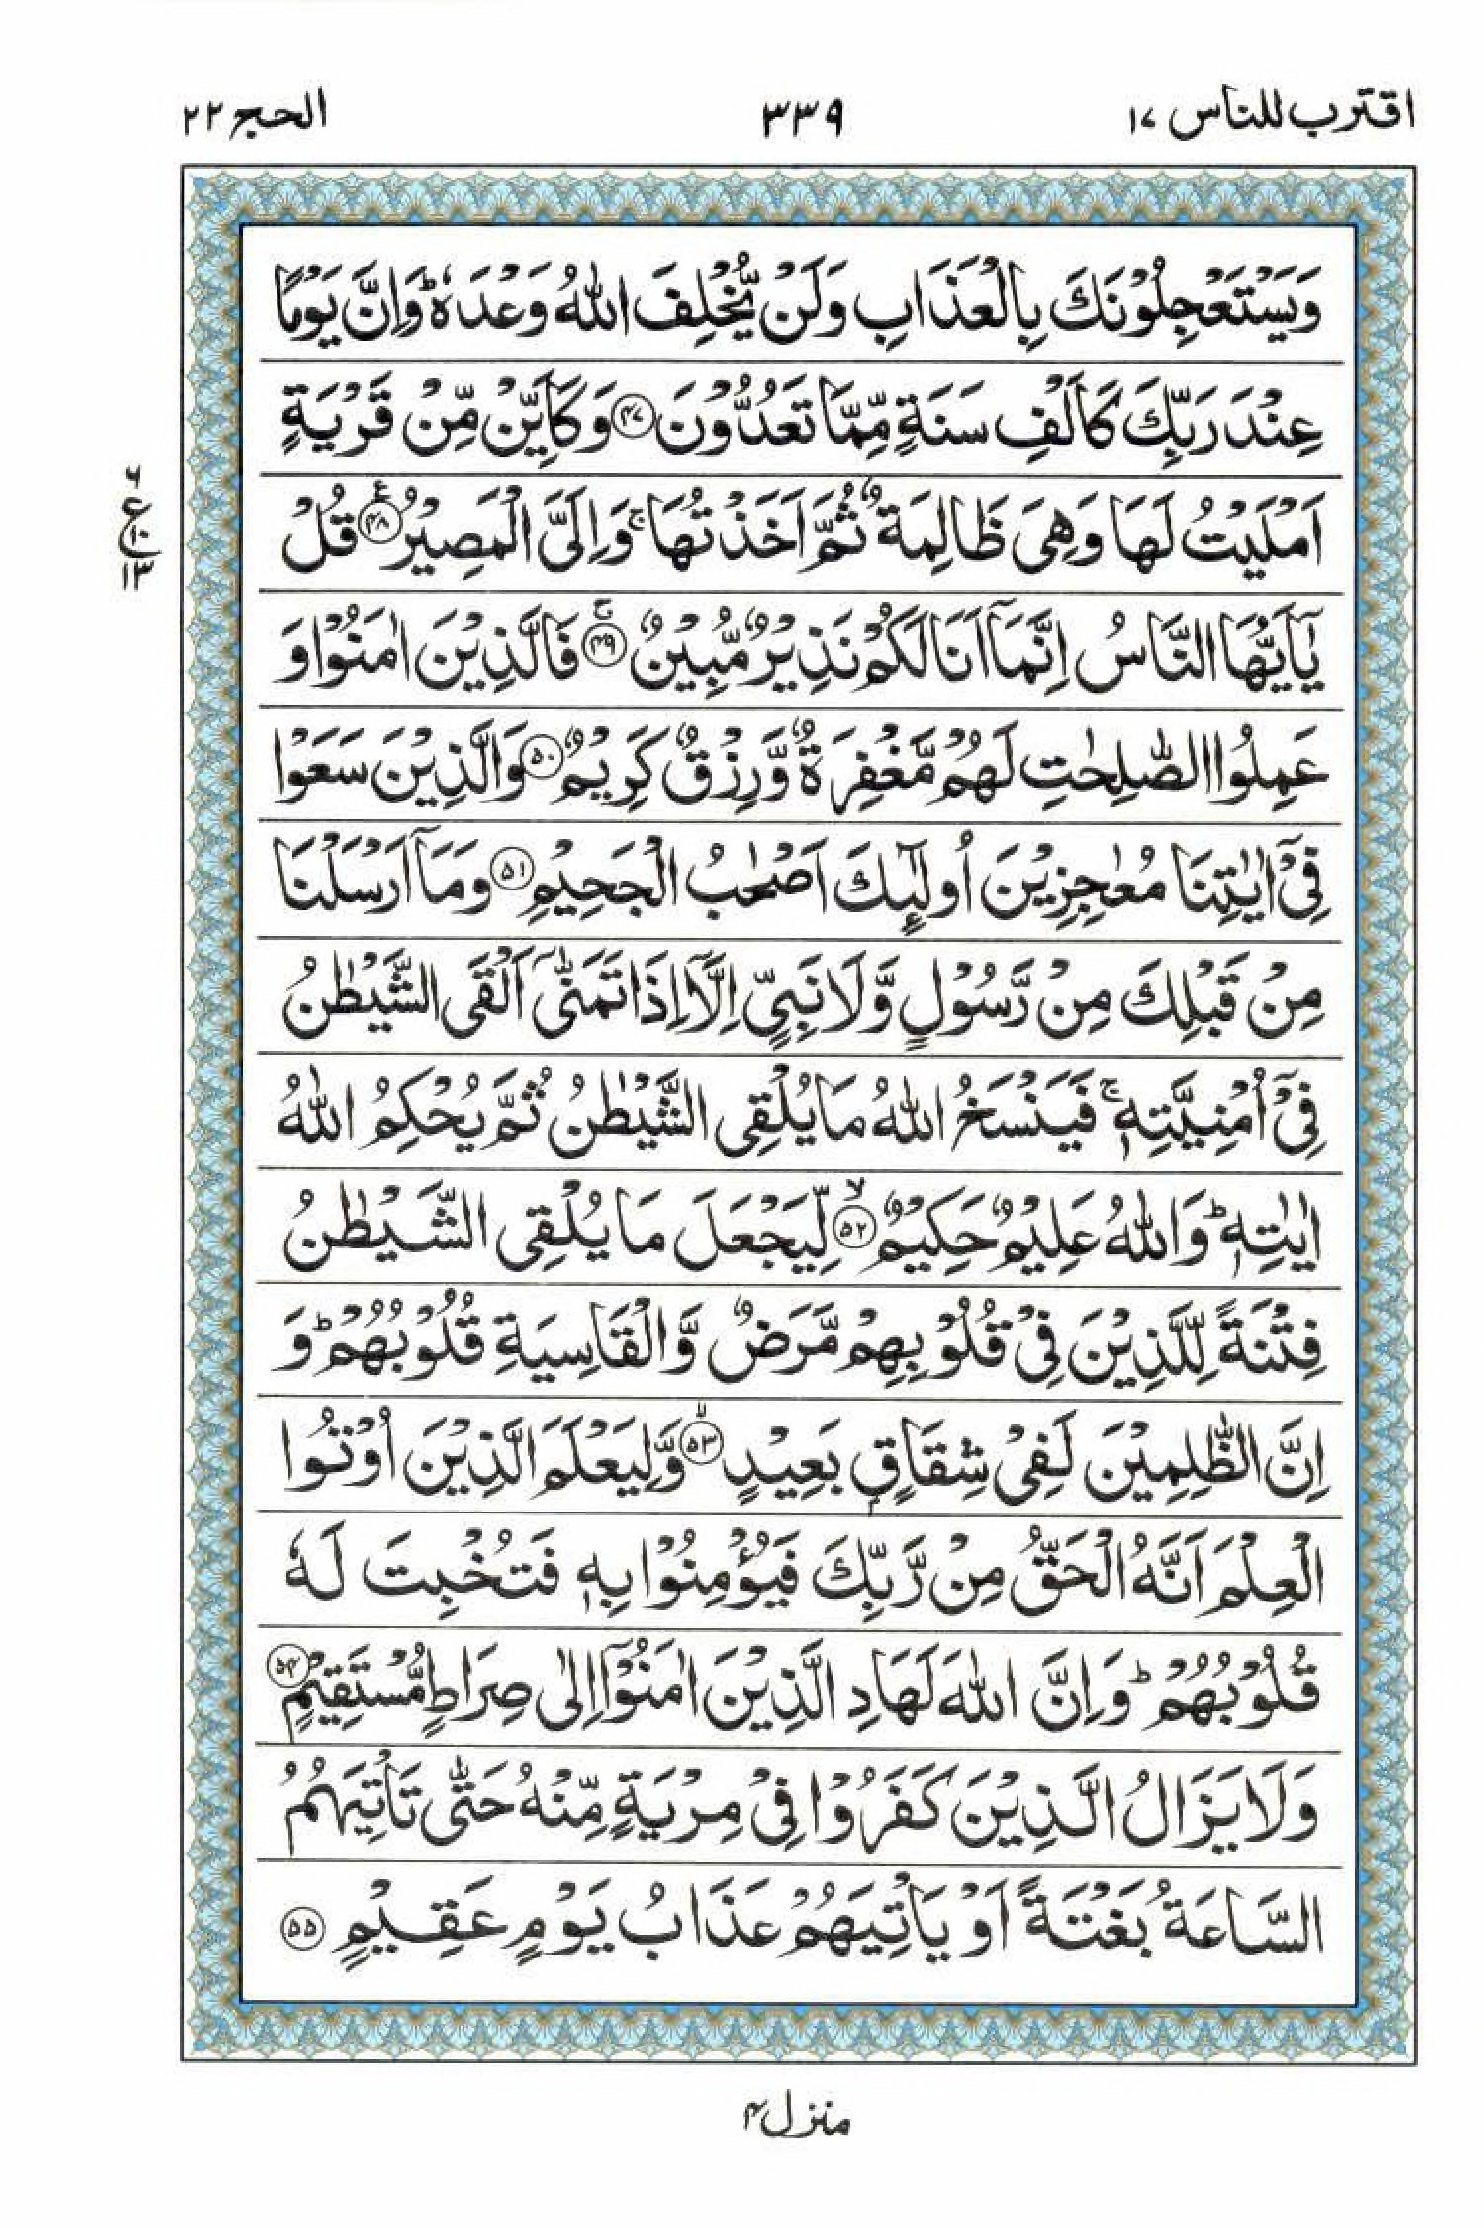 اقترب للناس ١٧
٣٣٩
الحج ٢٢
وَيَسْتَعْجِلُوْنَكَ بِالْعَذَابِ وَلَنْ يُّخْلِفَ اللّٰهُ وَعْدَهٗ ؕ وَاِنَّ يَوْمًا
عِنْدَ رَبِّكَ كَاَلْفِ سَنَةٍ مِّمَّا تَعُدُّوْنَ ﴿۴۷﴾ وَكَاَيِّنْ مِّنْ قَرْيَةٍ
اَمْلَيْتُ لَهَا وَهِىَ ظَالِمَةٌ ثُمَّ اَخَذْتُهَا ۚ وَاِلَىَّ الْمَصِيْرُ ﴿۴۸﴾ قُلْ
يٰۤاَيُّهَا النَّاسُ اِنَّمَاۤ اَنَا لَكُمْ نَذِيْرٌ مُّبِيْنٌ ۚ ﴿۴۹﴾ فَالَّذِيْنَ اٰمَنُوْا وَ
عَمِلُوا الصّٰلِحٰتِ لَهُمْ مَّغْفِرَةٌ وَّرِزْقٌ كَرِيْمٌ ﴿۵۰﴾ وَالَّذِيْنَ سَعَوْا
فِىْۤ اٰيٰتِنَا مُعٰجِزِيْنَ اُولٰٓٮِٕكَ اَصْحٰبُ الْجَحِيْمِ ﴿۵۱﴾ وَمَاۤ اَرْسَلْنَا
مِنْ قَبْلِكَ مِنْ رَّسُوْلٍ وَّلَا نَبِىٍّ اِلَّاۤ اِذَا تَمَنّٰٓى اَلْقَى الشَّيْطٰنُ
فِىْۤ اُمْنِيَّتِهٖ ۚ فَيَنْسَخُ اللّٰهُ مَا يُلْقِى الشَّيْطٰنُ ثُمَّ يُحْكِمُ اللّٰهُ
اٰيٰتِهٖ ؕ وَاللّٰهُ عَلِيْمٌ حَكِيْمٌ ۙ ﴿۵۲﴾ لِّيَجْعَلَ مَا يُلْقِى الشَّيْطٰنُ
فِتْنَةً لِّلَّذِيْنَ فِىْ قُلُوْبِهِمْ مَّرَضٌ وَّالْقَاسِيَةِ قُلُوْبُهُمْ ؕ وَ
اِنَّ الظّٰلِمِيْنَ لَفِىْ شِقَاقٍۭ بَعِيْدٍ ۙ ﴿۵۳﴾ وَّلِيَعْلَمَ الَّذِيْنَ اُوْتُوا
الْعِلْمَ اَنَّهُ الْحَقُّ مِنْ رَّبِّكَ فَيُؤْمِنُوْا بِهٖ فَتُخْبِتَ لَهٗ
قُلُوْبُهُمْ ؕ وَاِنَّ اللّٰهَ لَهَادِ الَّذِيْنَ اٰمَنُوْۤا اِلٰى صِرَاطٍ مُّسْتَقِيْمٍ ﴿۵۴﴾
وَلَا يَزَالُ الَّذِيْنَ كَفَرُوْا فِىْ مِرْيَةٍ مِّنْهُ حَتّٰى تَاْتِيَهُمُ
السَّاعَةُ بَغْتَةً اَوْ يَاْتِيَهُمْ عَذَابُ يَوْمٍ عَقِيْمٍ ﴿۵۵﴾
٦
ع
١٠
١٣
منزل ۴